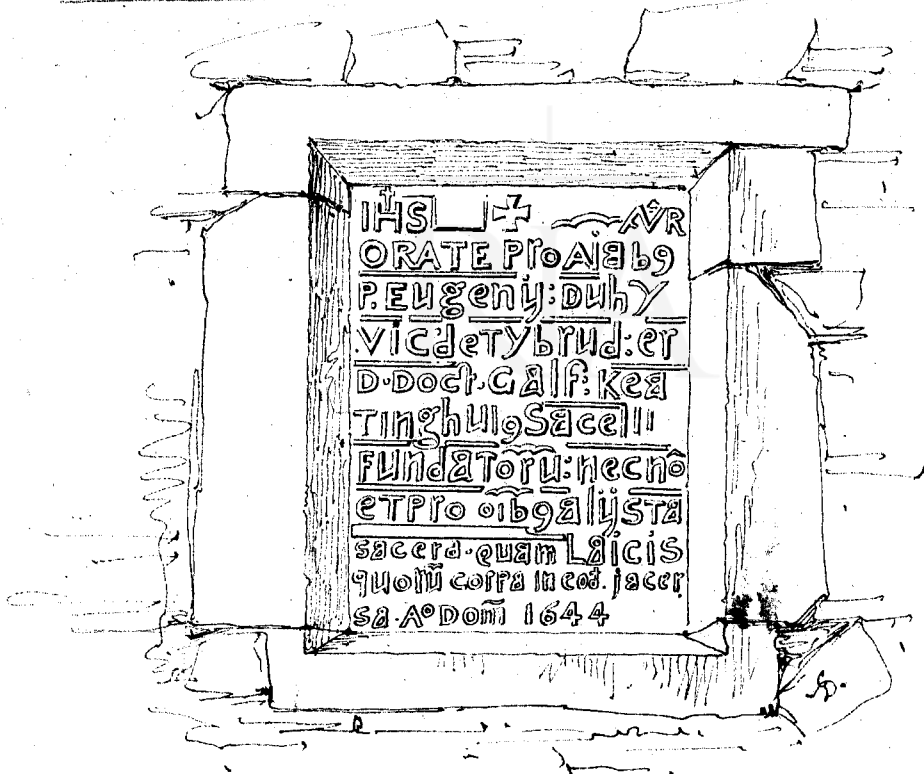 IHS ✠ MR
ORATE Pro Aiab9
P. Eugenij: Duhy
Vic'de Tybrud: er
D. Doct. Galf: Kea
Tingh Ui9 Sacelli
Fundatorū: necnō
et Pro oib9 alijs Ta
sacerd. quam Laicis
quorū corpa in eod. jacer
sa. Aº Domī 1644